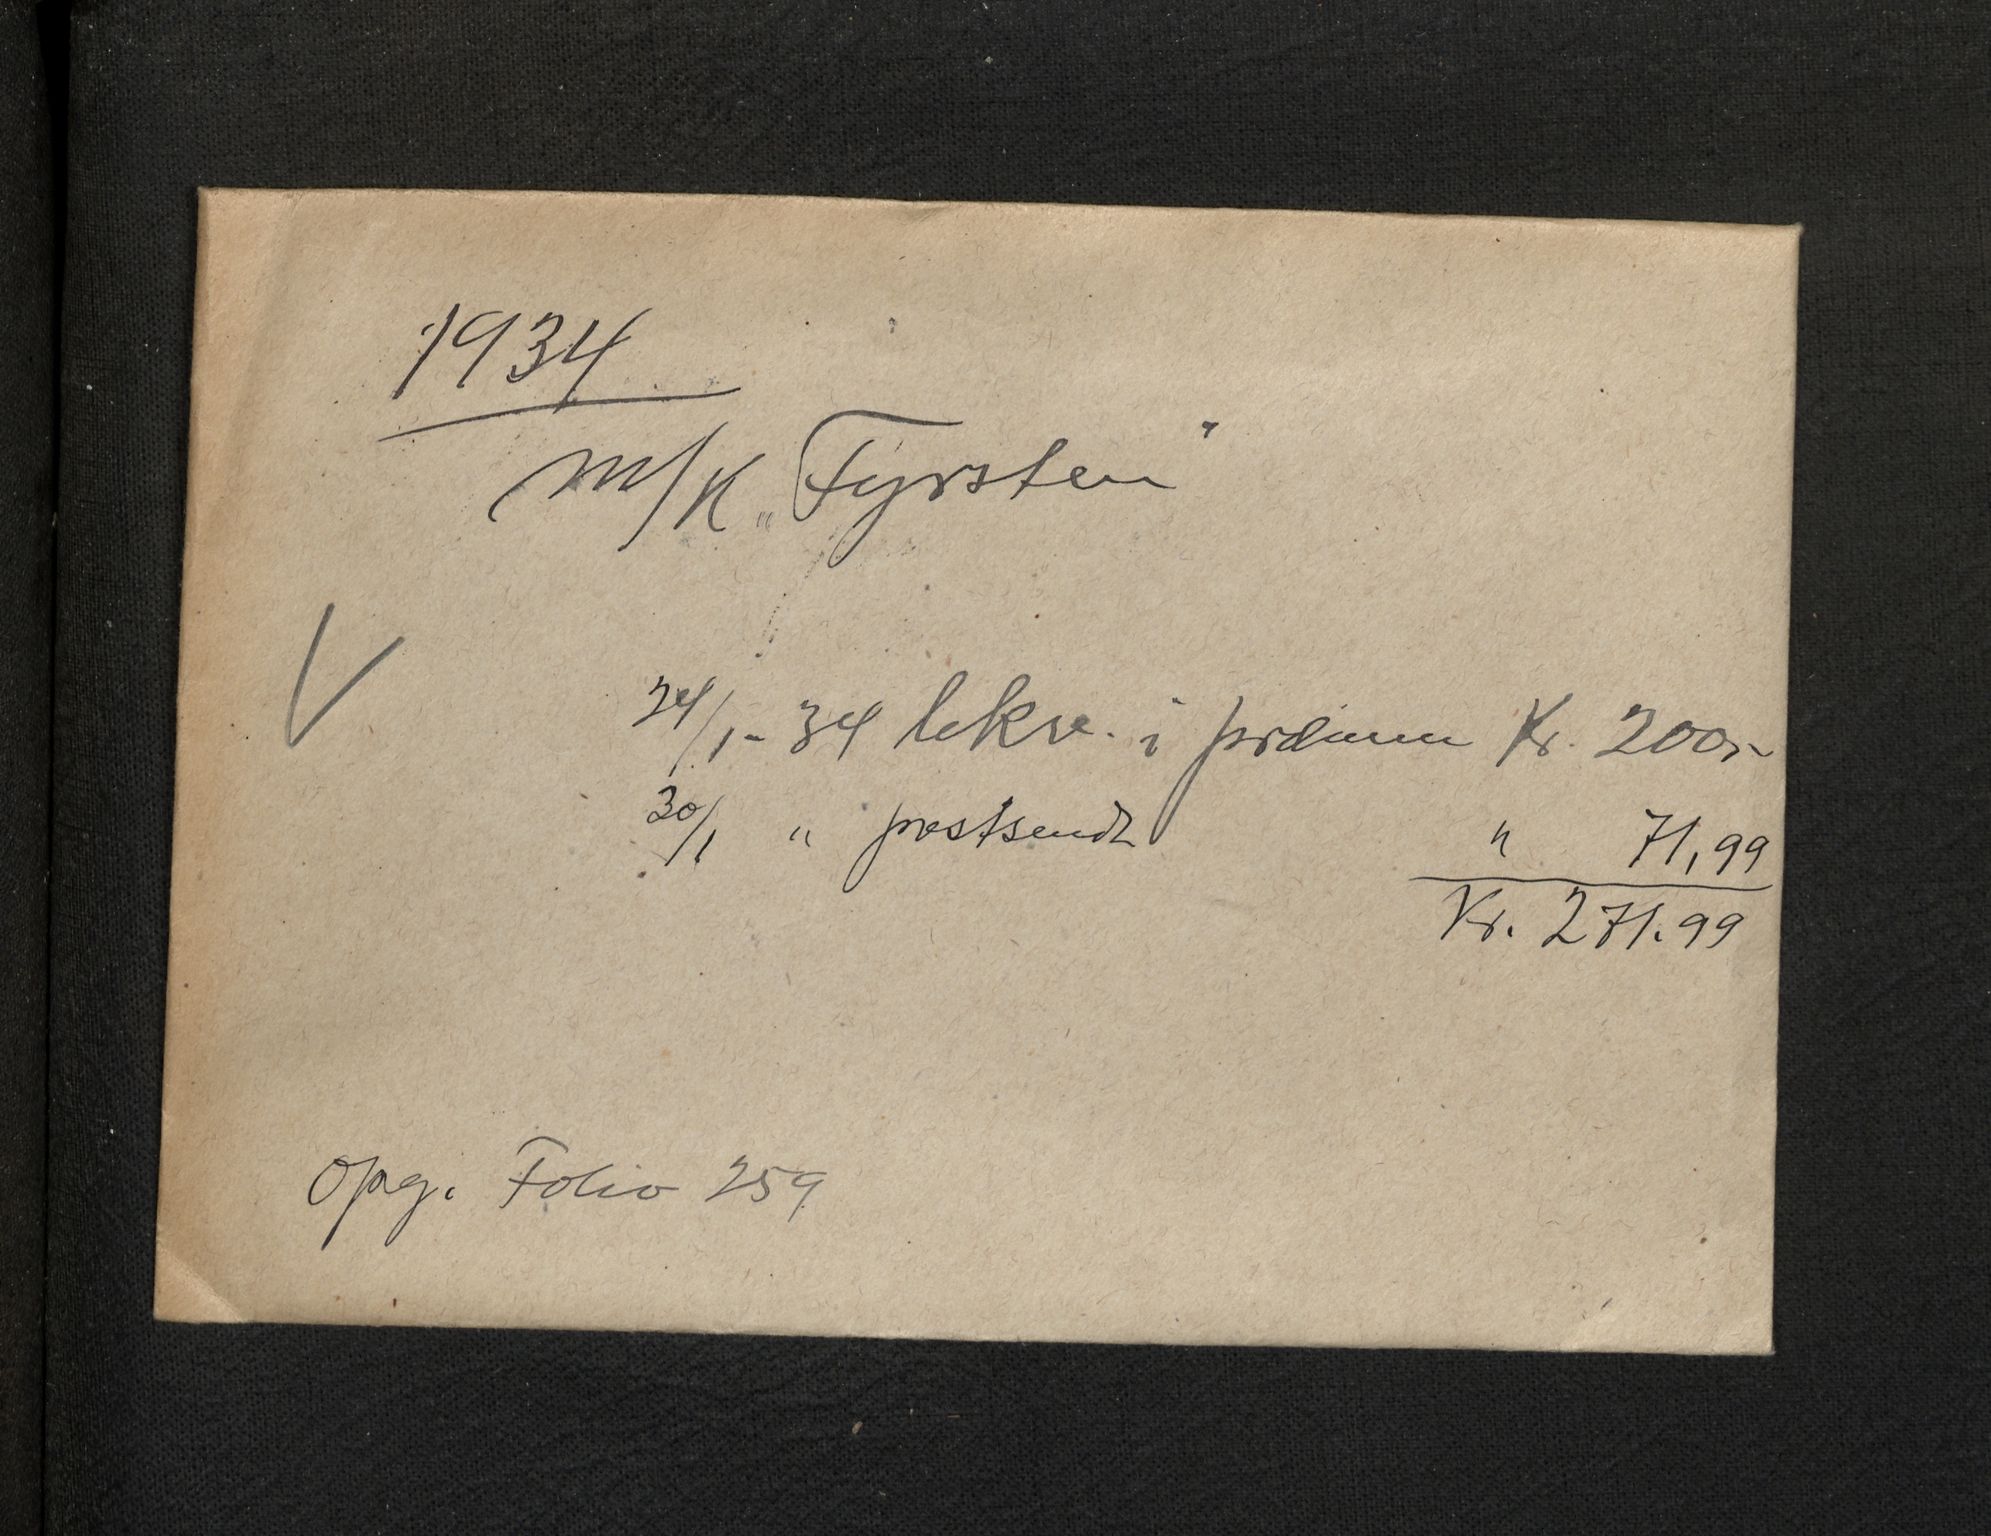 1934
M/K „Fyrsten"
24/1 - 34 lekve. i prelimin Kr. 200,-
30/1 " postsendt " 71,99
Kr. 271.99
Opg. Folio 259